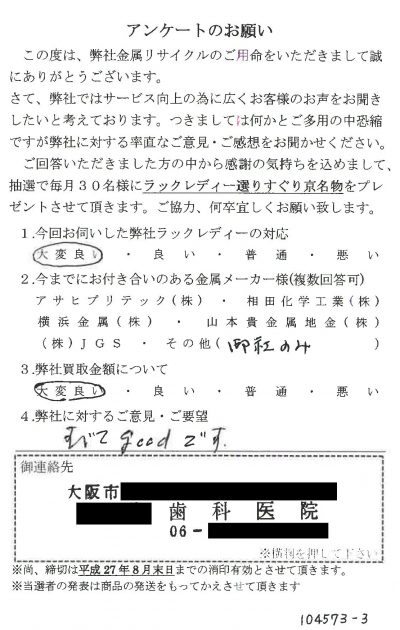 アンケートのお願い
この度は、弊社金属リサイクルのご用命をいただきまして誠
にありがとうございます。
さて、弊社ではサービス向上の為に広くお客様のお声をお聞き
したいと考えております。つきましては何かとご多用の中恐縮
ですが弊社に対する率直なご意見・ご感想をお聞かせください。
ご回答いただきました方の中から感謝の気持ちを込めまして、
抽選で毎月30名様にラックレディー選りすぐり京名物をプレ
ゼントさせて頂きます。ご協力、何卒宜しくお願い致します。
1.今回お伺いした弊社ラックレディーの対応
大変良い ・ 良い ・ 普通 ・ 悪い
2.今までにお付き合いのある金属メーカー様(複数回答可)
アサヒプリテック(株) ・ 相田化学工業(株)
横浜金属(株) ・ 山本貴金属地金(株)
(株)JGS ・ その他(御社のみ)
3.弊社買取金額について
大変良い ・ 良い ・ 普通 ・ 悪い
4.弊社に対するご意見・ご要望
すべて goodです.
御連絡先
大阪市
歯科医院
06-
※横判を押して下さい
※尚、締切は平成27年8月末日までの消印有効とさせて頂きます。
※当選者の発表は商品の発送をもってかえさせて頂きます
104573-3